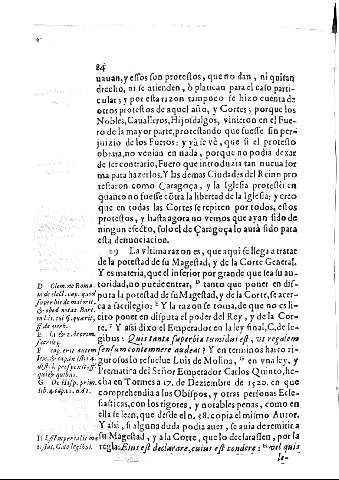 84
uauan, y essos son protestos, que no dan, ni quitan
drecho, ni se atienden, ò platican para el caso parti-
cular; y por esta razon tampoco se hizo cuenta de
otros protestos de aquel año, y Cortes; porque los
Nobles, Caualleros, Hijosdalgos, vinieron en el Fue-
ro de la mayor parte, protestando que fuesse sin per-
juizio de los Fueros; y yà se vè, que si el protesto
obrara, no venian en nada, porque no podia dexar
de ser contrario, Fuero que introduzia tan nueua for-
ma para hazerlos. Y las demas Ciudades del Reino pro
testaron como Caragoça, y la Iglesia protestò en
quanto no fuesse cõtra la libertad de la Iglesia; y creo
que en todas las Cortes se repiten por todos, estos
protestos, y hasta agora no vemos que ayan sido de
ningun efecto, solo el de Çaragoça lo aurà sido para
esta denunciacion.
29 La vltima razon es, que aqui se llega a tratar
de la potestad de su Magestad, y de la Corte General.
Y es materia, que el inferior por grande que sea su au-
toridad, no puede entrar, D tanto que poner en dis-
puta la potestad de su Magestad, y de la Corte, se acer-
ca a sacrilegio; E Y la razon se toma, de que no es li-
cito poner en disputa el poder del Rey, y de la Cor-
te. F Y assi dixo el Emperador en la ley final, C. de le-
gibus: Quis tanta superbia tumidus est, vt regalem
sensum contemnere audeat? Y en terminos harto ri-
gurosos lo resuelue Luis de Molina, G en vna ley, y
Prematica del Señor Emperador Carlos Quinto, he-
cha en Tormes a 17. de Deziembre de 1520. en que
comprehendia a los Obispos, y otras personas Ecle-
siasticas, con los rigores, y notables penas, como en
ella se leen, que desde el n. 58. copia el mismo Autor.
Y assi, si alguna duda podia auer, se auia de remitir a
su Magestad, y a la Corte, que lo declarassen, por la
regla: Eius est declarare, cuius est condere: H vel quis
le-
D Clem. ne Roma-
ni de elect. cap. quod
super his de maiorit.
& obed.
ff. de
E
sacrileg.
F cap.
G De Hisp. prim.
lib. 4. cap.
H